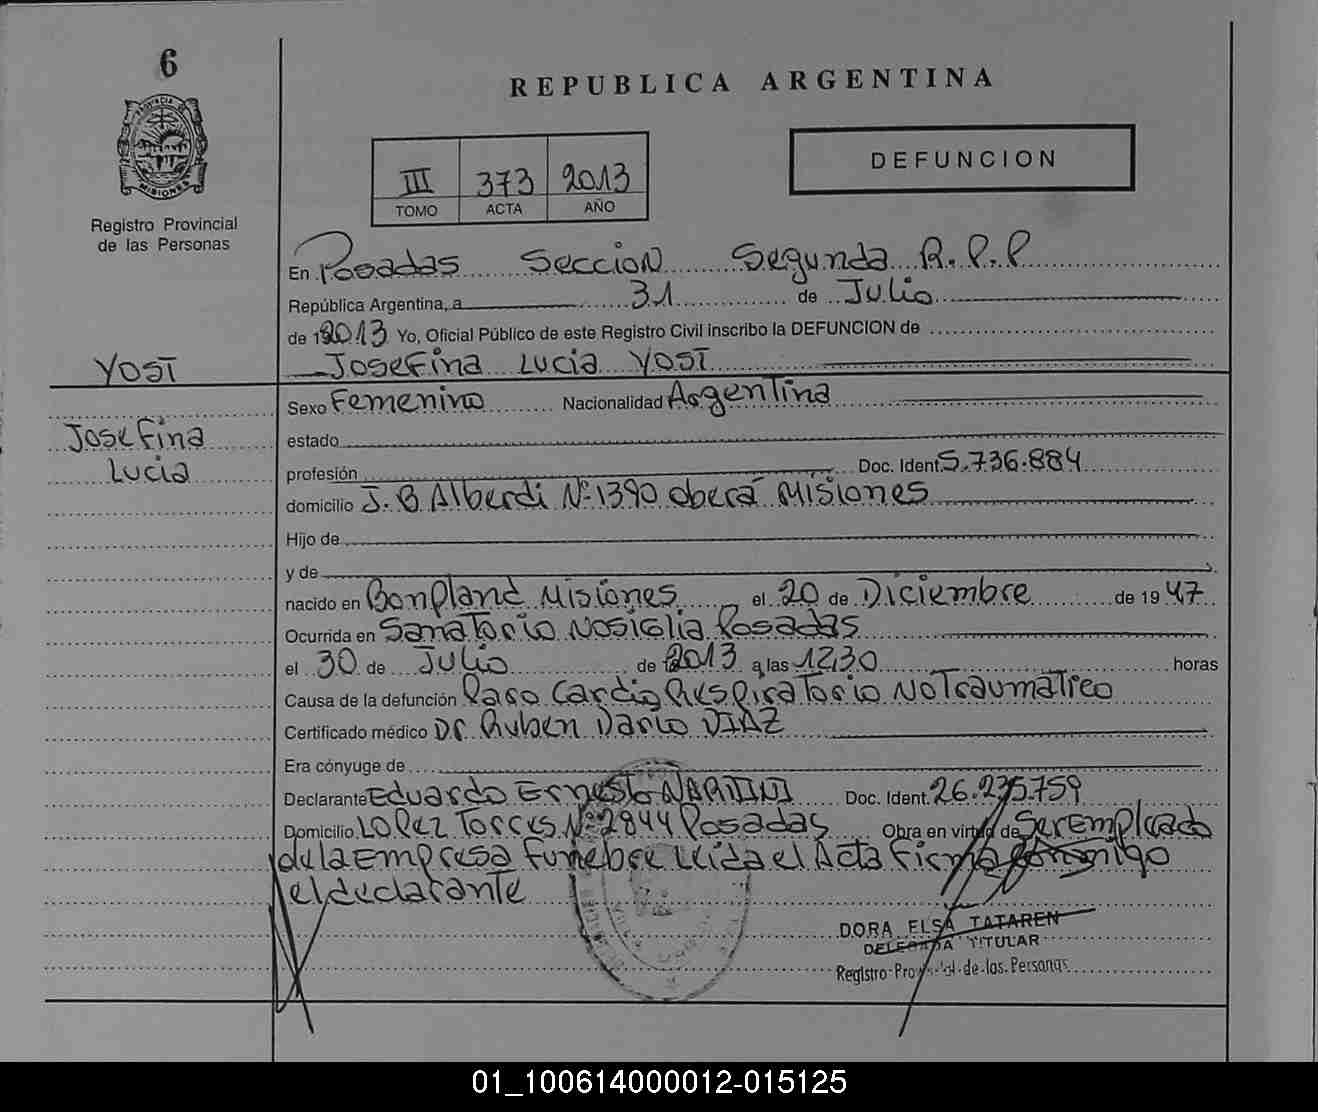 6
PROVINCIA DE
MISIONES
Registro Provincial
de las Personas
REPUBLICA ARGENTINA
III 373 2013
TOMO ACTA AÑO
DEFUNCION
En Posadas Seccion Segunda R.P.P
República Argentina, a 31 de Julio
de 2013 Yo, Oficial Público de este Registro Civil inscribo la DEFUNCION de
YOST
Josefina Lucia YOST
Josefina
Lucia
Sexo Femenino Nacionalidad Argentina
estado
profesión Doc. Ident. 5.736.884
domicilio J. B Alberdi Nº 1390 oberá Misiones
Hijo de
y de
nacido en Bonpland Misiones el 20 de Diciembre de 1947
Ocurrida en Sanatorio Nosiglia Posadas
el 30 de Julio de 2013 a las 12,30 horas
Causa de la defunción Paro Cardio Respiratorio No Traumatico
Certificado médico Dr. Ruben Dario DIAZ
Era cónyuge de
Declarante Eduardo Ernesto NARDINI Doc. Ident. 26.235.759
Domicilio LOPEZ Torres Nº 2844 Posadas Obra en virtud de Ser Empleado
de la Empresa Funebre Leida el Acta Firma Conmigo
el declarante
DORA ELSA TATAREN
DELEGADA TITULAR
Registro Provincial de las Personas
01_100614000012-015125